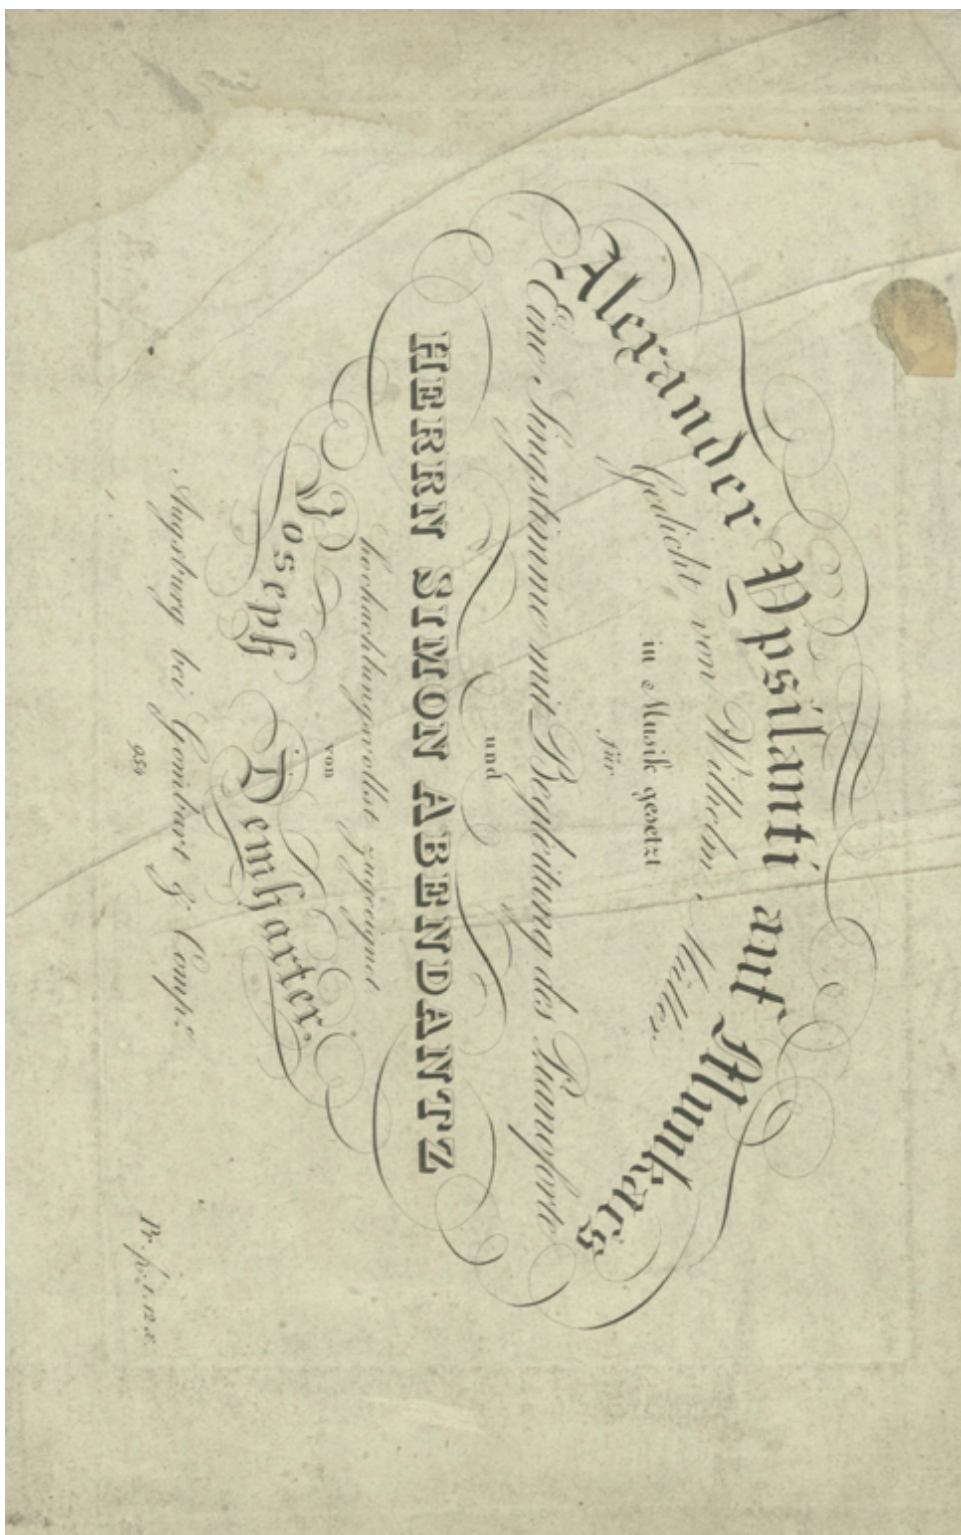 Alexander Ypsilanti auf Munkács
Gedicht von Wilhelm Müller.
in Musik gesetzt
für
Eine Singstimme mit Begleitung des Pianoforte
und
HERRN SIMON ABENDANTZ
hochachtungsvollst zugeeignet
von
Joseph Demharter.
Augsburg bei Gombart & Comp.
954
Pr. fr. 1. 12 x.